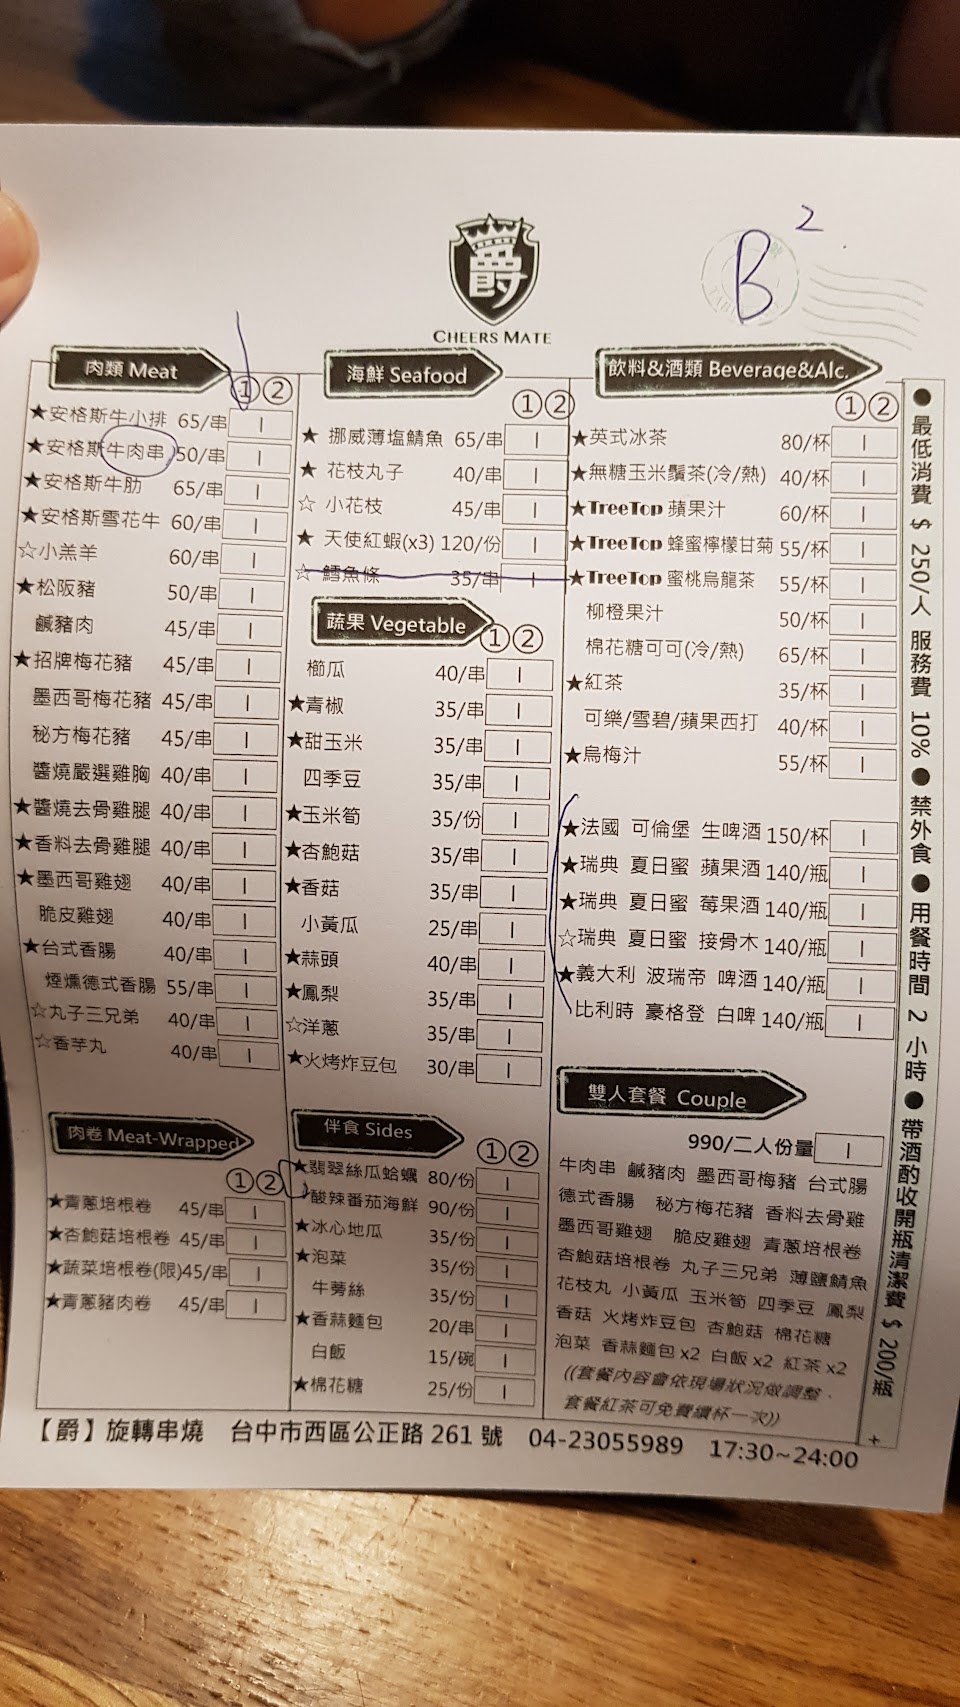 B 2
爵
CHEERS MATE
肉類 Meat
① ②
★安格斯牛小排 65/串
★安格斯牛肉串 50/串
★安格斯牛肋 65/串
★安格斯雪花牛 60/串
☆小羔羊 60/串
★松阪豬 50/串
鹹豬肉 45/串
★招牌梅花豬 45/串
墨西哥梅花豬 45/串
秘方梅花豬 45/串
醬燒嚴選雞胸 40/串
★醬燒去骨雞腿 40/串
★香料去骨雞腿 40/串
★墨西哥雞翅 40/串
脆皮雞翅 40/串
★台式香腸 40/串
煙燻德式香腸 55/串
☆丸子三兄弟 40/串
☆香芋丸 40/串
肉卷 Meat-Wrapped
① ②
★青蔥培根卷 45/串
★杏鮑菇培根卷 45/串
★蔬菜培根卷(限)45/串
★青蔥豬肉卷 45/串
海鮮 Seafood
① ②
★ 挪威薄塩鯖魚 65/串
★ 花枝丸子 40/串
☆ 小花枝 45/串
★ 天使紅蝦(x3) 120/份
☆ 鱈魚條 35/串
蔬果 Vegetable
① ②
櫛瓜 40/串
★青椒 35/串
★甜玉米 35/串
四季豆 35/串
★玉米筍 35/份
★杏鮑菇 35/串
★香菇 35/串
小黃瓜 25/串
★蒜頭 40/串
★鳳梨 35/串
☆洋蔥 35/串
★火烤炸豆包 30/串
伴食 Sides
① ②
★翡翠絲瓜蛤蠣 80/份
酸辣番茄海鮮 90/份
★冰心地瓜 35/份
★泡菜 35/份
牛蒡絲 35/份
★香蒜麵包 20/串
白飯 15/碗
★棉花糖 25/份
飲料&酒類 Beverage&Alc.
① ②
★英式冰茶 80/杯
★無糖玉米鬚茶(冷/熱) 40/杯
★TreeTop 蘋果汁 60/杯
★TreeTop 蜂蜜檸檬甘菊 55/杯
★TreeTop 蜜桃烏龍茶 55/杯
柳橙果汁 50/杯
棉花糖可可(冷/熱) 65/杯
★紅茶 35/杯
可樂/雪碧/蘋果西打 40/杯
★烏梅汁 55/杯
★法國 可倫堡 生啤酒 150/杯
★瑞典 夏日蜜 蘋果酒 140/瓶
★瑞典 夏日蜜 莓果酒 140/瓶
☆瑞典 夏日蜜 接骨木 140/瓶
★義大利 波瑞帝 啤酒 140/瓶
比利時 豪格登 白啤 140/瓶
雙人套餐 Couple
990/二人份量
牛肉串 鹹豬肉 墨西哥梅豬 台式腸
德式香腸 秘方梅花豬 香料去骨雞
墨西哥雞翅 脆皮雞翅 青蔥培根卷
杏鮑菇培根卷 丸子三兄弟 薄鹽鯖魚
花枝丸 小黃瓜 玉米筍 四季豆 鳳梨
香菇 火烤炸豆包 杏鮑菇 棉花糖
泡菜 香蒜麵包x2 白飯x2 紅茶x2
((套餐內容會依現場狀況做調整，
套餐紅茶可免費續杯一次))
● 最低消費 $ 250/人 服務費 10% ● 禁外食 ● 用餐時間 2 小時 ● 帶酒酌收開瓶清潔費 $ 200/瓶
【爵】旋轉串燒 台中市西區公正路 261 號 04-23055989 17:30~24:00